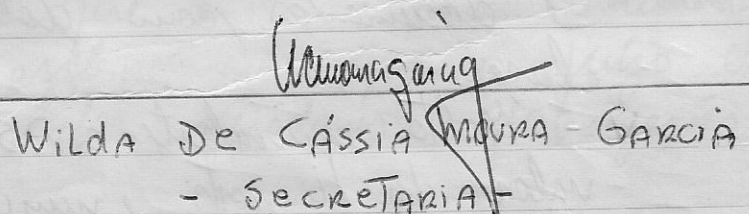 Wilda De Cássia Moura - Garcia
- Secretaria -